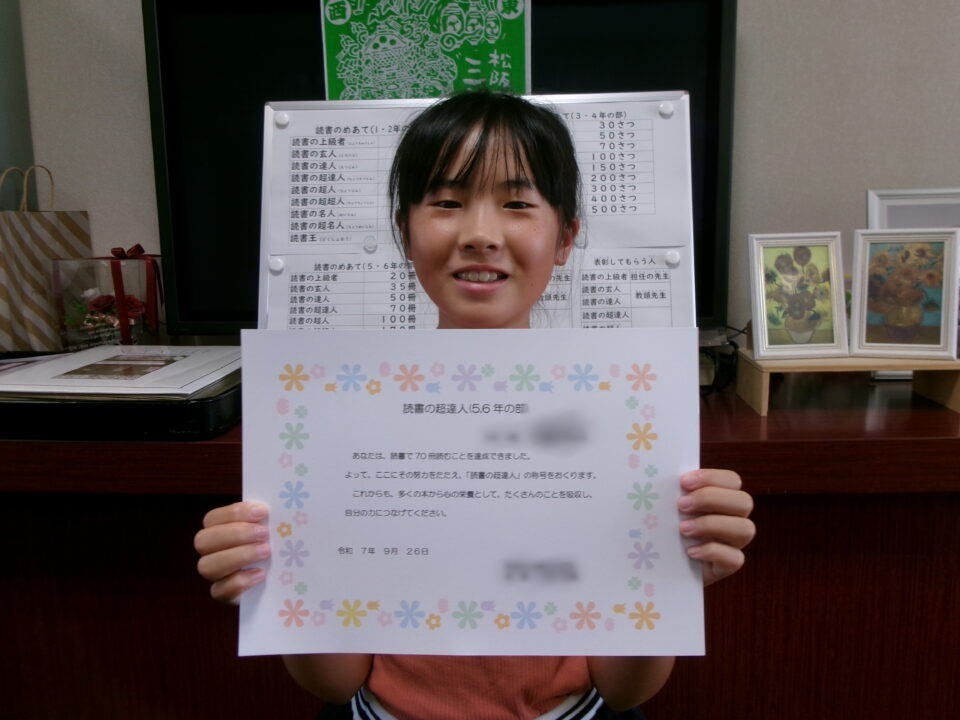 西
東
松阪
三
読書のめあて(1・2年の
読書の上級者
読書の玄人
読書の達人
読書の超達人
読書の超人
読書の超超人
読書の名人
読書の超名人
読書王
て(3・4年の部)
30さつ
50さつ
70さつ
100さつ
150さつ
200さつ
300さつ
400さつ
500さつ
読書のめあて(5・6年の部
読書の上級者 20冊
読書の玄人 35冊
読書の達人 50冊
読書の超達人 70冊
読書の超人 100冊
表彰してもらう人
の先生
読書の上級者 担任の先生
読書の玄人
教頭先生
読書の達人
読書の超達人
読書の超達人(5,6年の部
あなたは、読書で70冊読むことを達成できました。
よって、ここにその努力をたたえ、「読書の超達人」の称号をおくります。
これからも、多くの本から心の栄養として、たくさんのことを吸収し、
自分の力につなげてください。
令和 7年 9月 26日